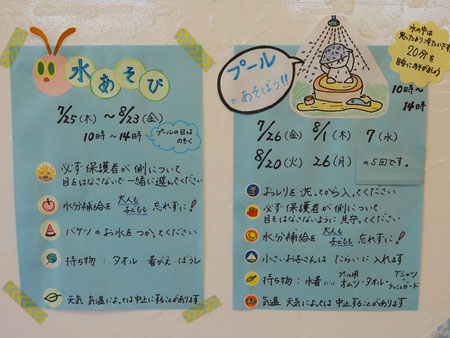 水あそび
7/25(木)～8/23(金)
10時～14時
プールの日は
のぞく
必ず保護者が側について
目をはなさないで一緒に遊んでください
水分補給を大人も子どもも忘れずに!
バケツのお水をつかってください
持ち物:タオル・着がえ・ぼうし
天気 気温によっては中止することがあります
プール
であそぼう!!
水の中は
思ったより冷たいです
20分を
目安にあそびましょう
10時～
14時
7/26(金) 8/1(木) 7(水)
8/20(火) 26(月) の5回です。
おしりを洗ってから入ってください
必ず保護者が側について
目をはなさないように見守ってください
水分補給を大人も子どもも忘れずに!
小さいお子さんはたらいに入れます
持ち物:水着またはプール用オムツ・タオル・Tシャツ ラッシュガード
気温 天気によっては中止することがあります